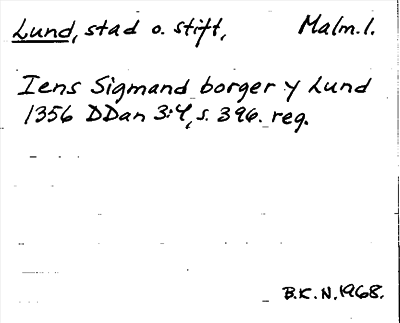 Lund, stad o. stift, Malm.l.
Iens Sigmand borger y Lund
1356 DDan 3:4, s. 396. reg.
B.K.N. 1968.